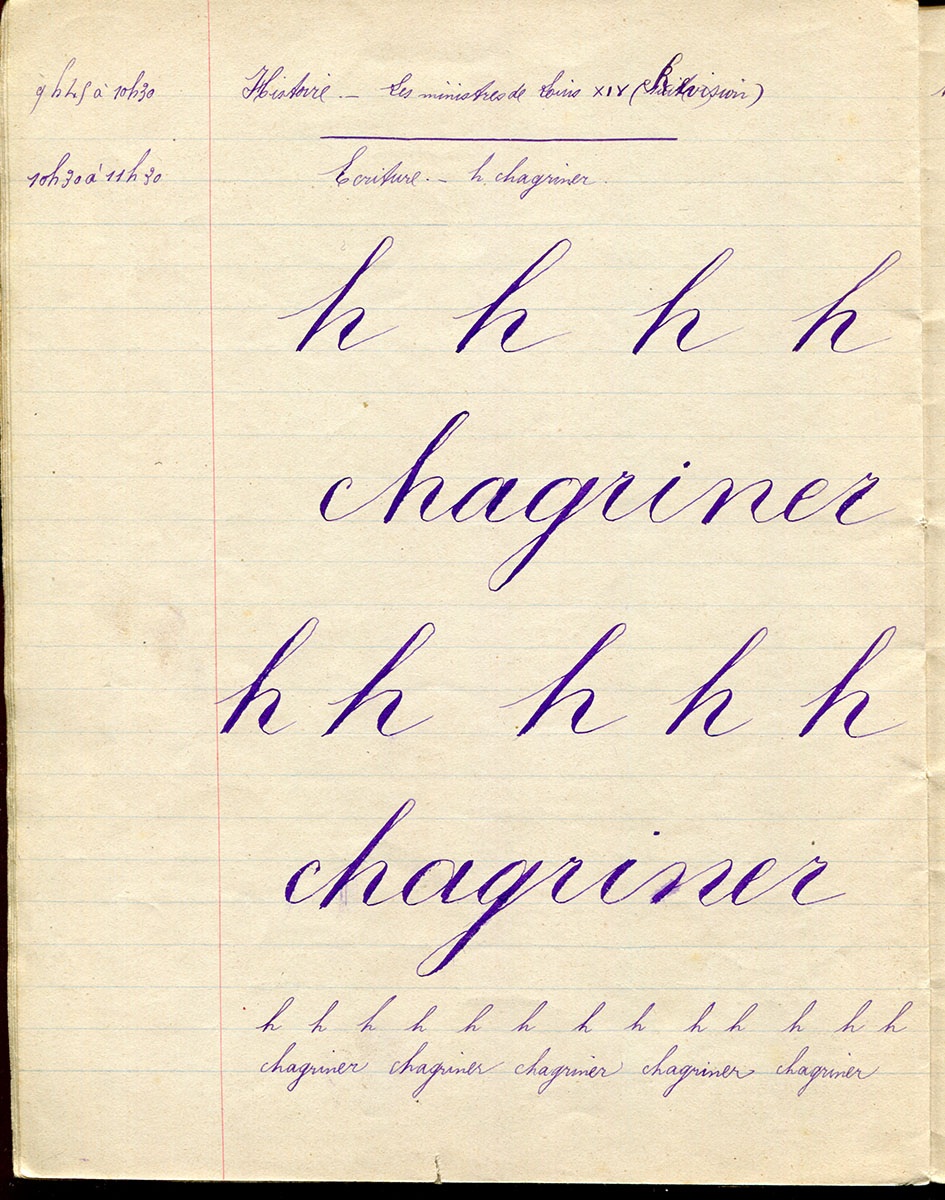 9h45 à 10h30 Histoire. - Les ministres de Louis XIV (
10h30 à 11h30 Ecriture. - h. chagriner.
h h h h
chagriner
h h h h h
chagriner
h h h h h h h h h h h h h
chagriner chagriner chagriner chagriner chagriner